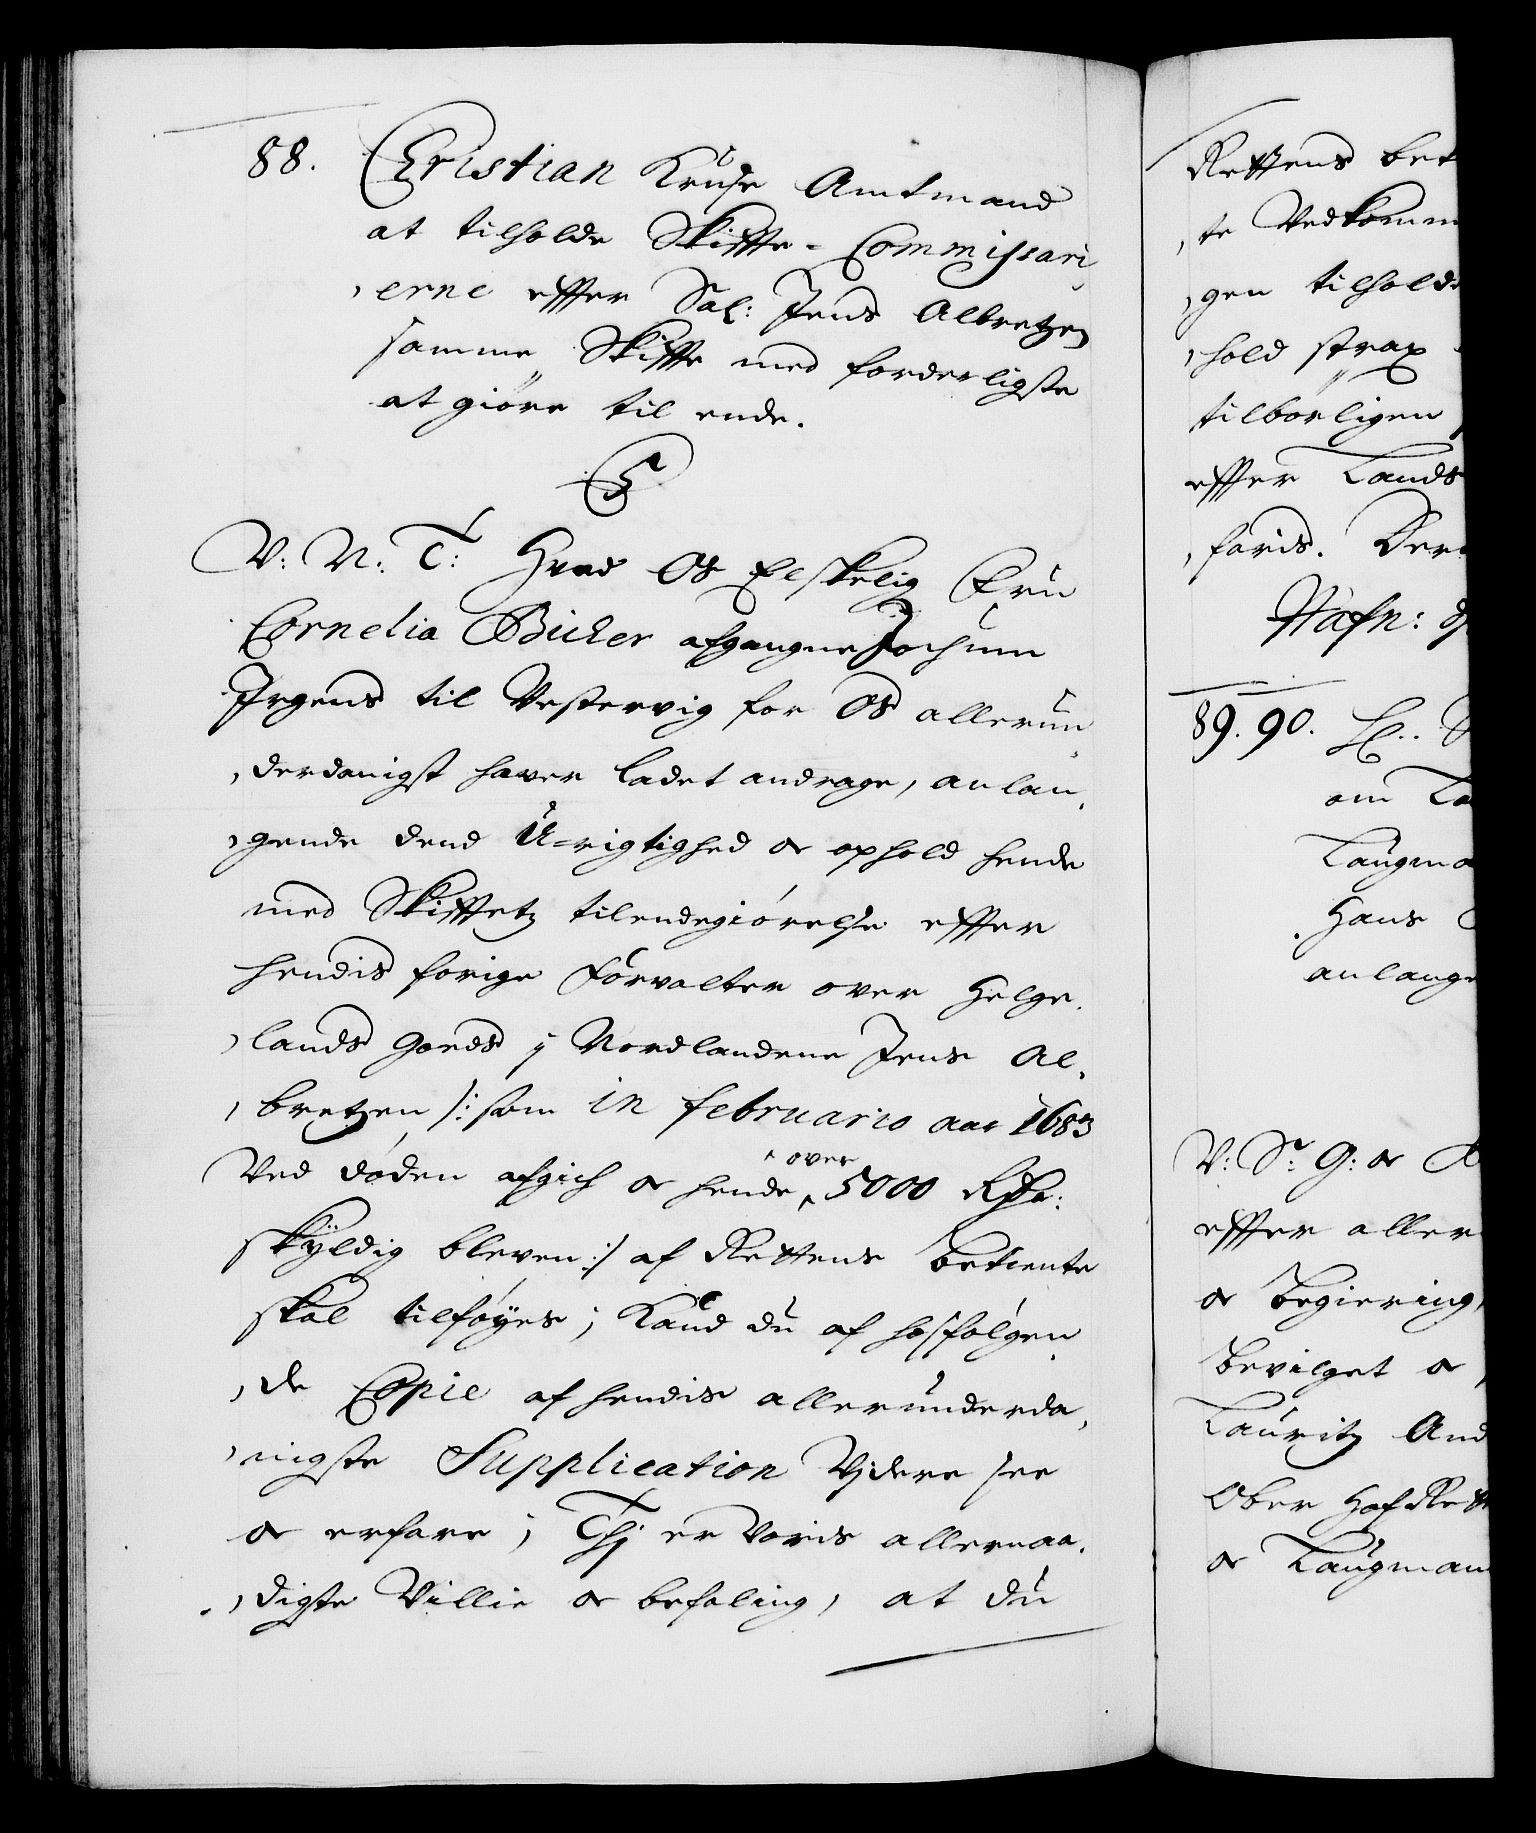 88. Christian Kruse Amtmand
at tilholde Skiffte-Commissari
erne effter Sal: Jens Albretzen
samme Skiffte med forderligste
at giöre til ende.
C5
V: N: T: Hvad Os Elskelig Fru
Cornelia Bicker afgangne Jochum
Irgens til Vestervig for Os allerun
derdanigst haver ladet andrage, anlan
gende dend U-rigtighed oc ophold hende
med Skifftetz tilendegiörelse effter
hendis forige Forvalter over Helge
lands Goeds j Nordlandene Jens Al
bretzen /: som in februario aar 1683
Ved döden afgich oc hende over 5000 Rdr:
skÿldig bleven :/ af Rettens betiente
skal tilföyes; Kand du af hosfölgen
de Copie af hendis allerunderda
nigste Supplication Vjdere see
oc erfare; Thj er Voris allernaa
digste Villie oc befaling, at du
Rettens bet
te Vedkomm
gen tilholde
hold strax
tilbörligen
effter Lands
faris. Der
Hafn: d
89. 90.
om La
Laugma
Hans
anlange
V: S: G: oc
effter aller
oc begiering
bevilget oc
Lauritz And
Ober HofRett
oc Laugman